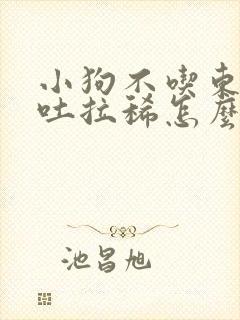 小狗不喫東
吐拉稀怎麼
池昌旭